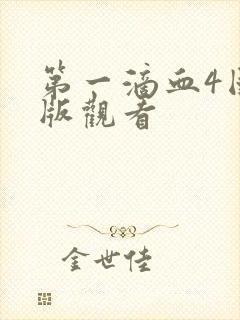 第一滴血4国
版觀看
金世佳